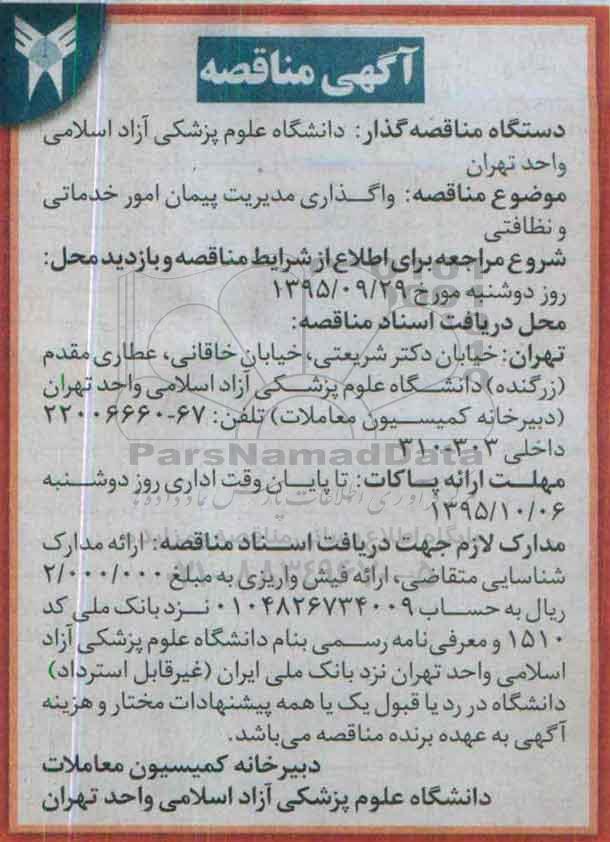 آگهی مناقصه
دستگاه مناقصه‌گذار: دانشگاه علوم پزشکی آزاد اسلامی
واحد تهران
موضوع مناقصه: واگذاری مدیریت پیمان امور خدماتی
و نظافتی
شروع مراجعه برای اطلاع از شرایط مناقصه و بازدید محل:
روز دوشنبه مورخ ۱۳۹۵/۰۹/۲۹
محل دریافت اسناد مناقصه:
تهران: خیابان دکتر شریعتی، خیابان خاقانی، عطاری مقدم
(زرگنده) دانشگاه علوم پزشکی آزاد اسلامی واحد تهران
(دبیرخانه کمیسیون معاملات) تلفن: ۶۷-۲۲۰۰۶۶۶۰
داخلی ۳۰۳-۳۱۰
ParsNamadData
مهلت ارائه پاکات: تا پایان وقت اداری روز دوشنبه
۱۳۹۵/۱۰/۰۶
مدارک لازم جهت دریافت اسناد مناقصه: ارائه مدارک
شناسایی متقاضی، ارائه فیش واریزی به مبلغ ۲/۰۰۰/۰۰۰
ریال به حساب ۰۱۰۴۸۲۶۷۳۴۰۰۹ نزد بانک ملی کد
۱۵۱۰ و معرفی‌نامه رسمی بنام دانشگاه علوم پزشکی آزاد
اسلامی واحد تهران نزد بانک ملی ایران (غیرقابل استرداد)
دانشگاه در رد یا قبول یک یا همه پیشنهادات مختار و هزینه
آگهی به عهده برنده مناقصه می‌باشد.
دبیرخانه کمیسیون معاملات
دانشگاه علوم پزشکی آزاد اسلامی واحد تهران